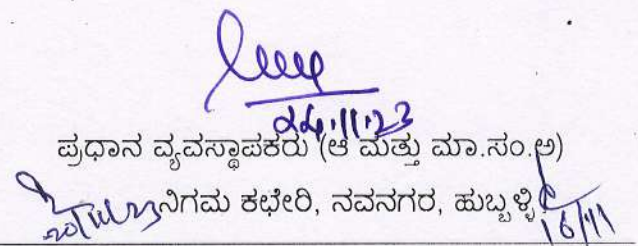 24.11.23
ಪ್ರಧಾನ ವ್ಯವಸ್ಥಾಪಕರು (ಆ ಮತ್ತು ಮಾ.ಸಂ.ಅ)
ನಿಗಮ ಕಛೇರಿ, ನವನಗರ, ಹುಬ್ಬಳ್ಳಿ
16/11